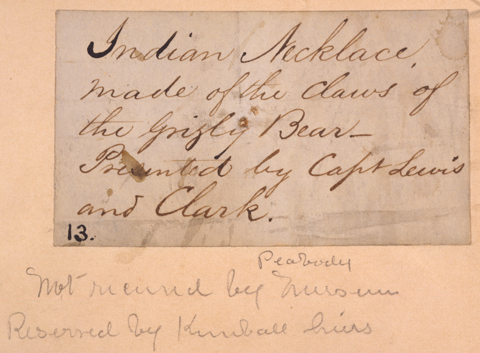 Indian Necklace,
made of the claws of
the Grizly Bear—
Presented by Capt Lewis
and Clark.
13.
Peabody
Not received by Museum
Reserved by Kimball hiers